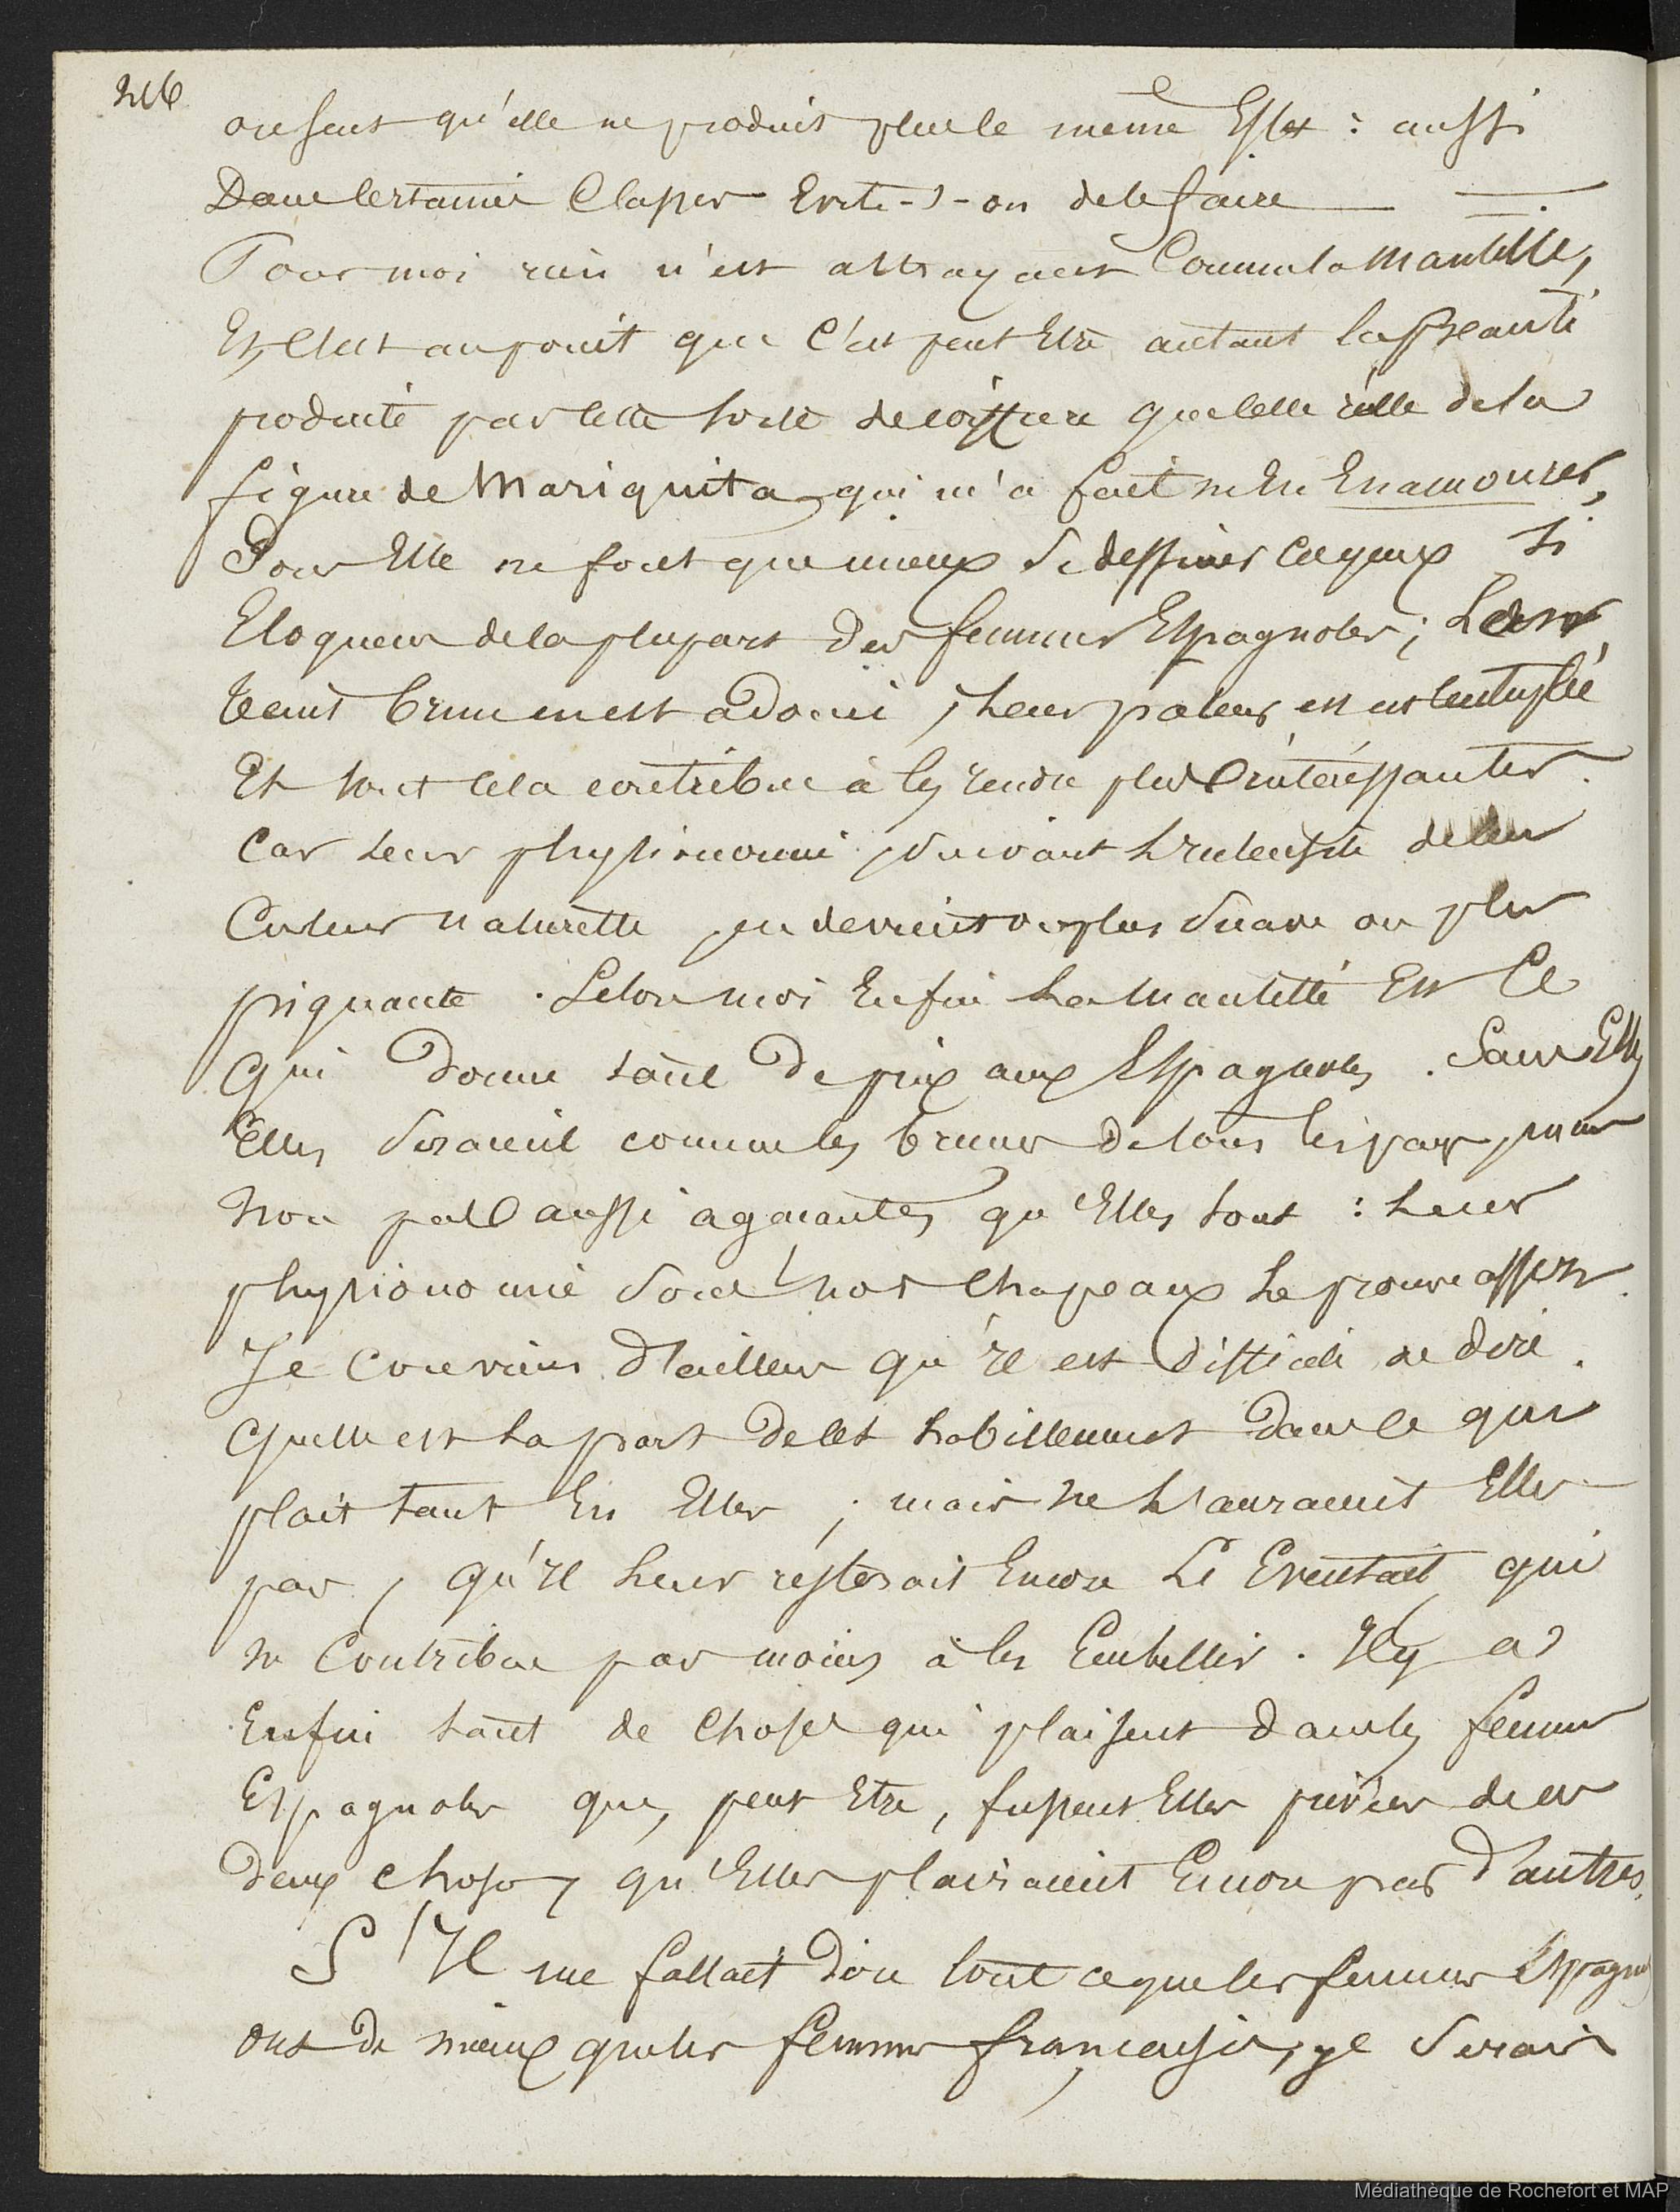 216
on sent qu'elle ne produit plus le même Effet : aussi
Dans certaines Classes Evite-t-on de le faire
Pour moi rien n'est attrayant Comme la Mantille,
Et c'est au point que C'est peut Etre autant la Beauté
produite par cette sorte de coiffure que celle réelle de la
figure de Mariquita, qui m'a fait m'En Enamourer,
Pour Elle ne font que mieux se dessiner les yeux si
Eloquens de la plupart Des femmes Espagnoles ; Leur
teint brun en est adouci, Leur paleur en est
Et tout cela contribue à les rendre plus intéressantes.
Car Leur physionomie, suivant L'intensité de leur
Couleur naturelle, en devient ou plus suave ou plus
piquante. Selon moi Enfin La Mantille Est Ce
Qui Donne tant De prix aux Espagnoles. Sans Elle
Elles seraient comme les brunes De tous les pays, mais
Non pas aussi agaçantes qu'Elles sont : Leur
physionomie sous nos Chapeaux Le prouve assez.
Je Conviens D'ailleurs qu'il est Difficile de dire
Quelle est La part De cet habillement Dans ce qui
plait tant En Elles ; mais ne L'auraient Elles
pas, qu'Il Leur resterait Encore L'Eventail qui
ne Contribue pas moins à les Embellir. Il y a
Enfin tant de Choses qui plaisent dans les femmes
Espagnoles que, peut Etre, fussent Elles privées de ces
deux choses, qu'Elles plairaient Encore par D'autres.
S'Il me fallait Dire tout ce que les femmes Espagnoles
ont De mieux que les femmes françaises, je serais
Médiathèque de Rochefort et MAP